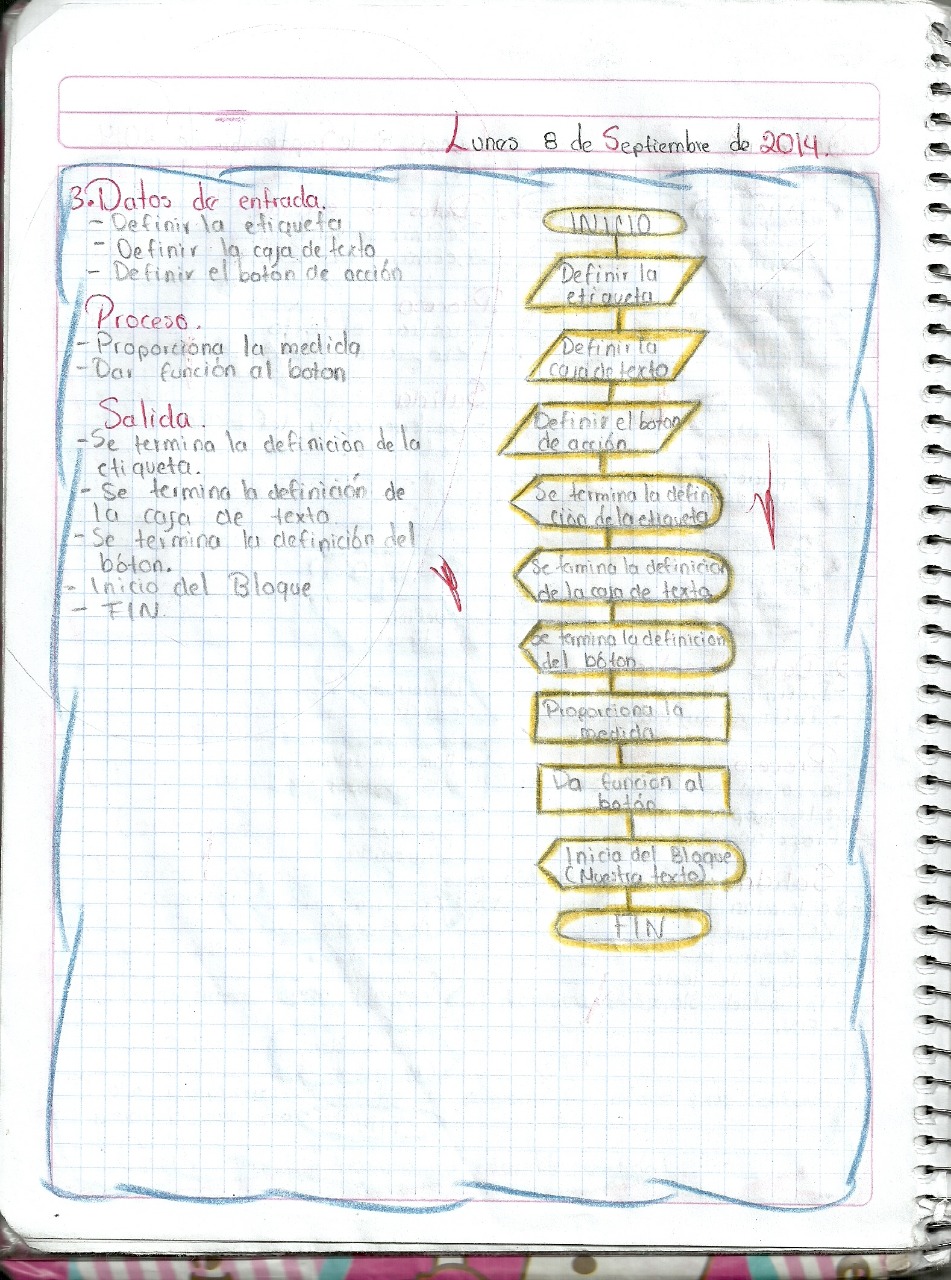 Lunes 8 de Septiembre de 2014.
3. Datos de entrada.
- Definir la etiqueta
- Definir la caja de texto
- Definir el botón de acción
Proceso.
- Proporciona la medida
- Dar función al boton
Salida.
- Se termina la definición de la
etiqueta.
- Se termina la definición de
la caja de texto.
- Se termina la definición del
bóton.
- Inicio del Bloque
- FIN.
INICIO
Definir la
etiqueta
Definir la
caja de texto
Definir el boton
de acción
Se termina la defini
ción de la etiqueta
Se tamina la definicion
de la caja de texto
Se termina la definicion
del bóton
Proporciona la
medida
Da función al
botón
Inicio del Bloque
(Muestra texto)
FIN